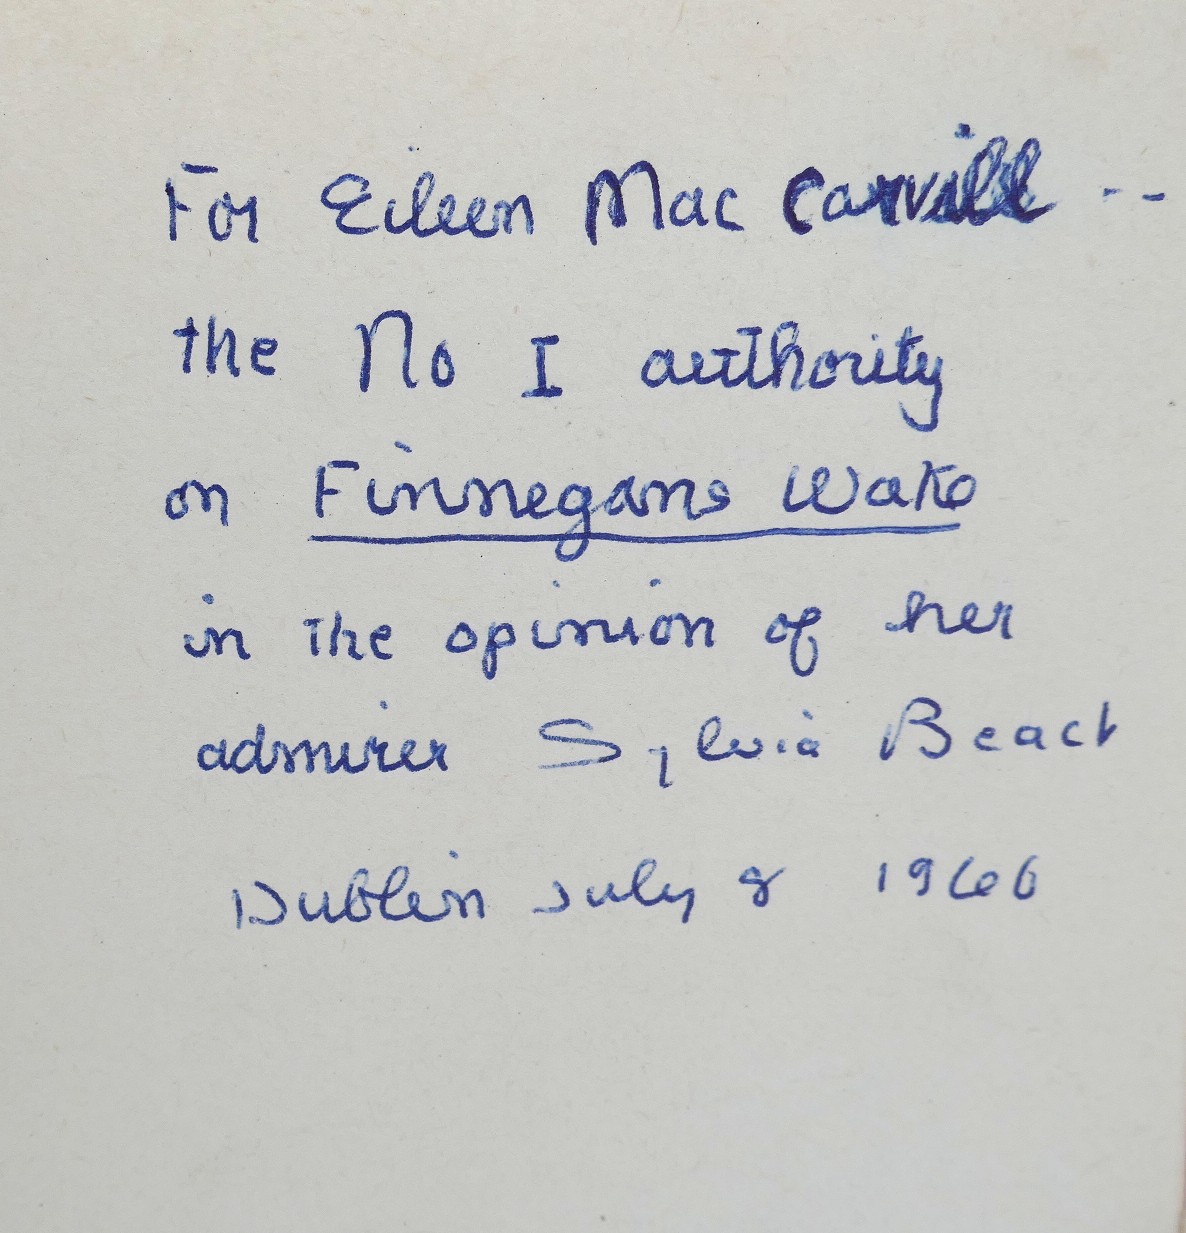 For Eileen Mac Carvill --
the No I authority
on Finnegans Wake
in the opinion of her
admirer Sylvia Beach
Dublin July 8 1960